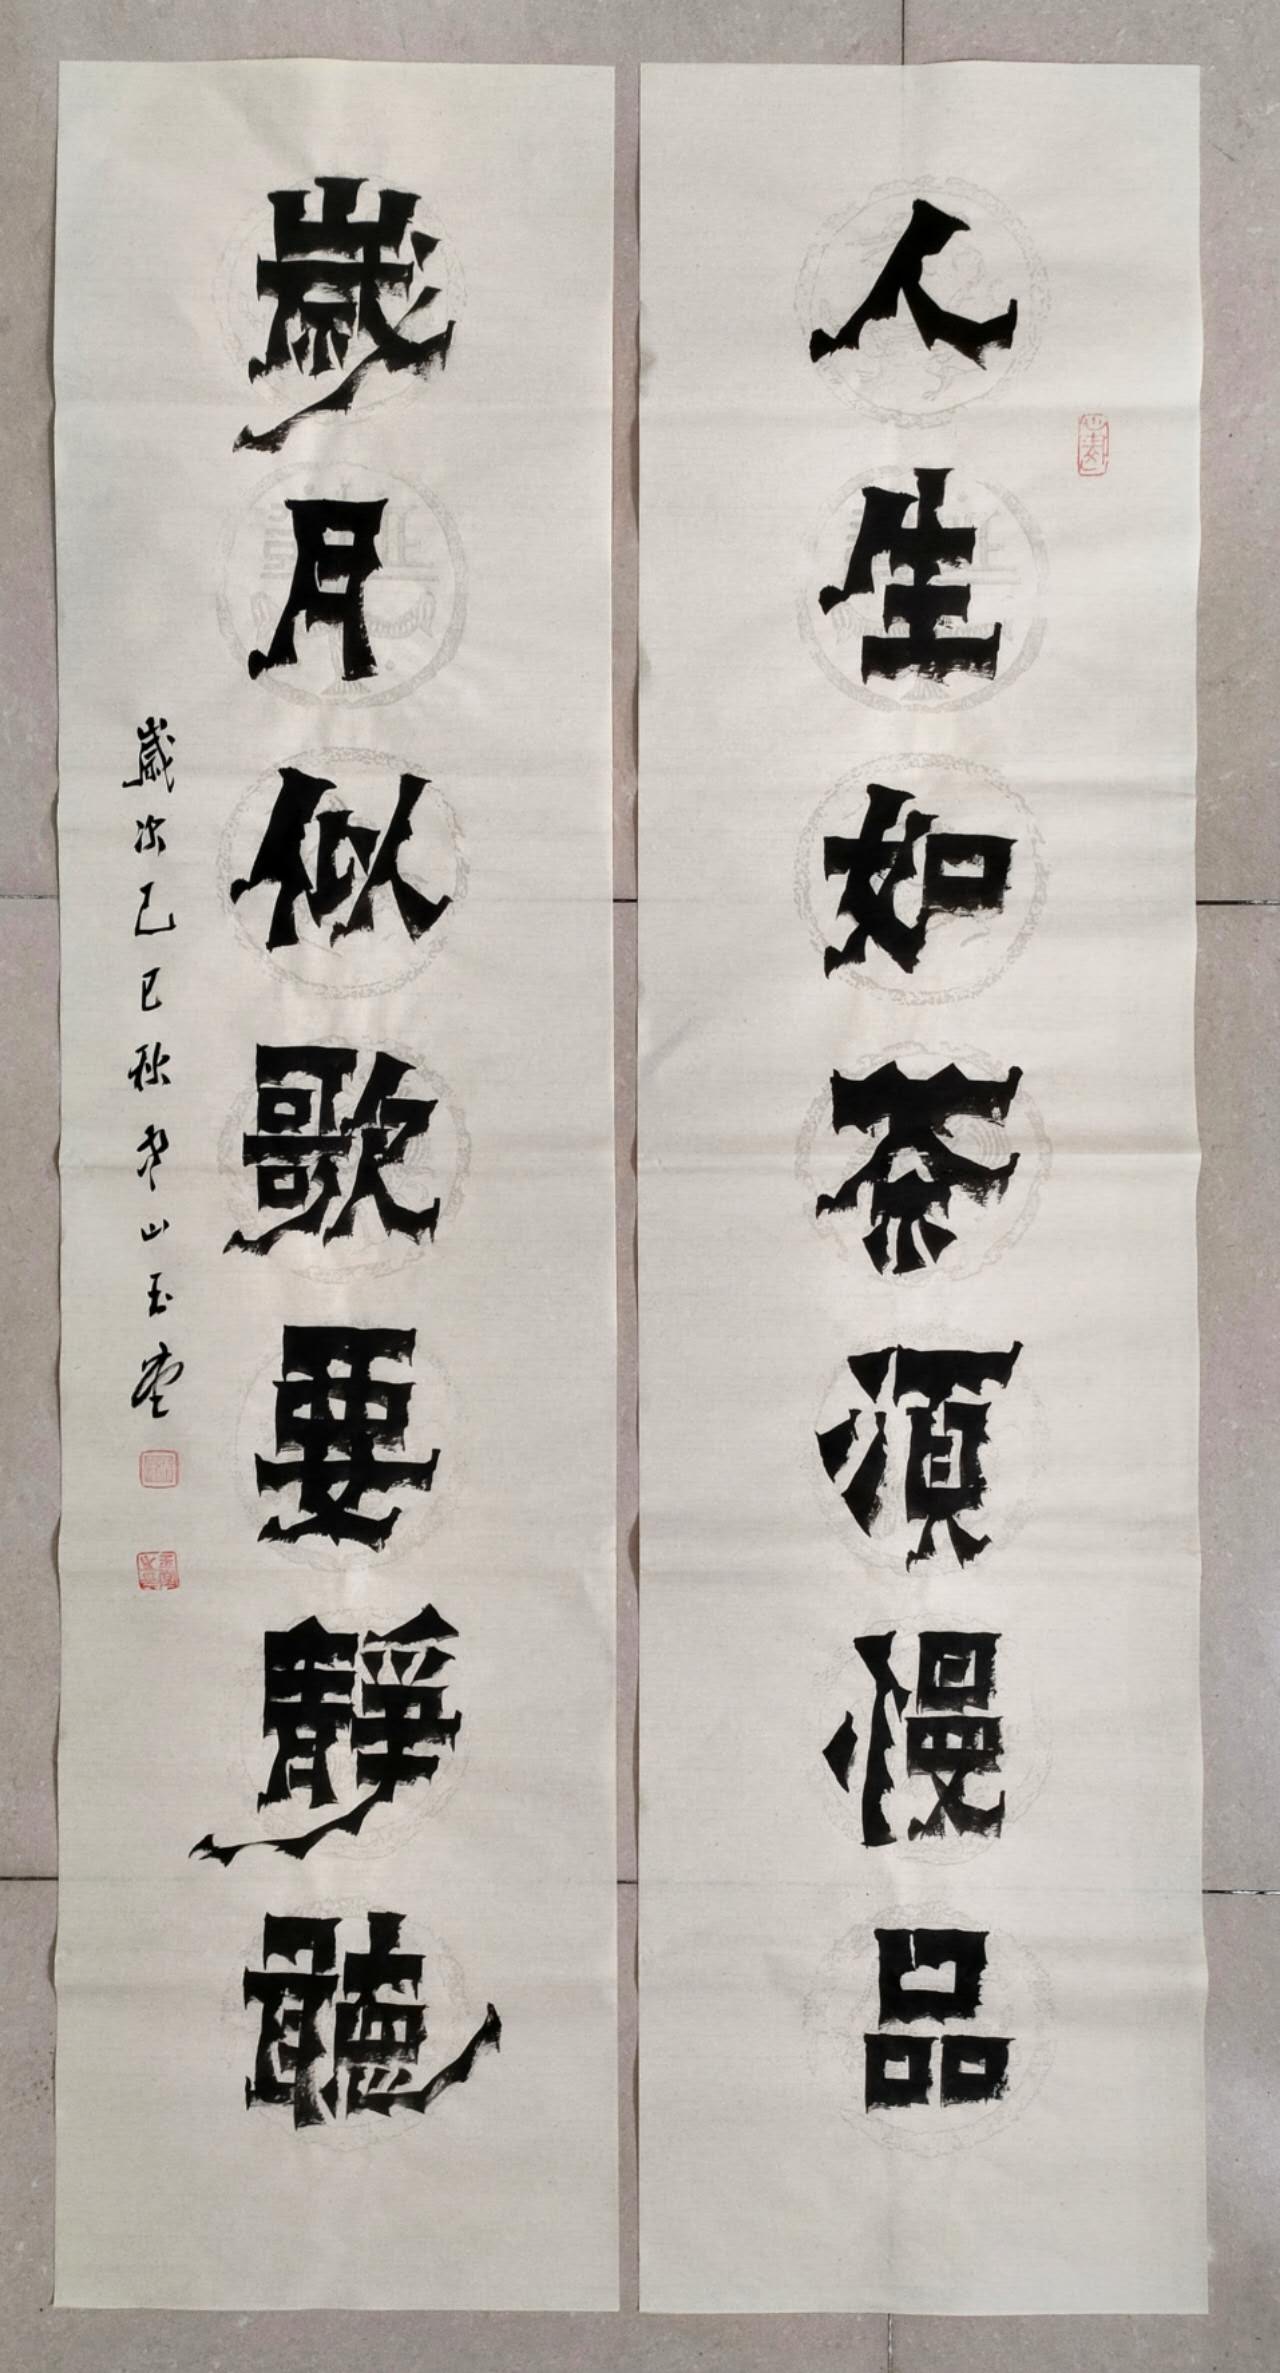 人生如茶須慢品
歲月似歌要靜聽
歲次乙巳秋 山玉堂